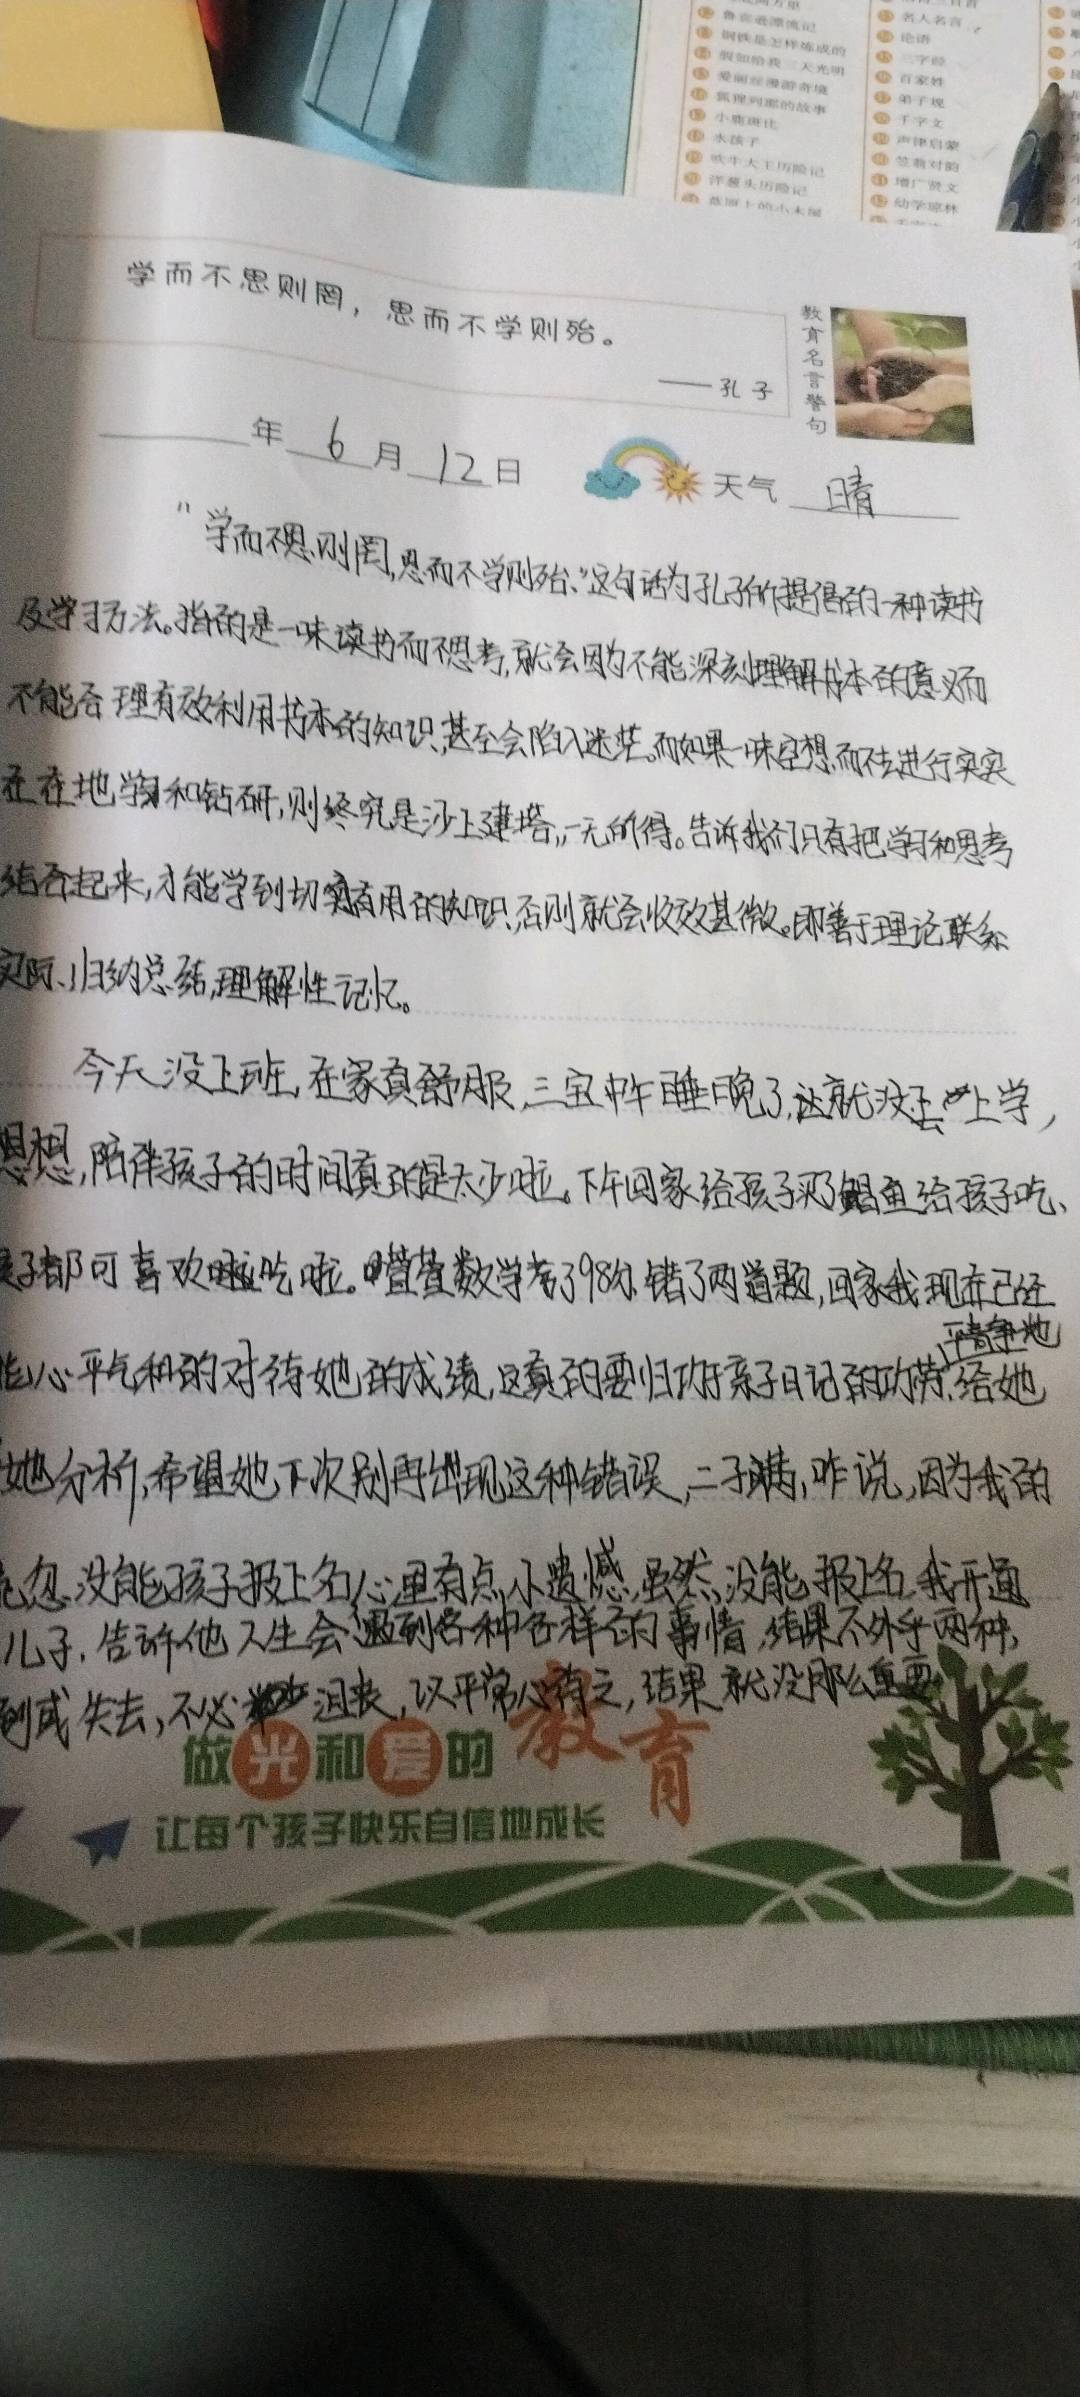 鲁滨逊漂流记
钢铁是怎样炼成的
假如给我三天光明
爱丽丝漫游奇境
狐狸列那的故事
小鹿斑比
水孩子
吹牛大王历险记
洋葱头历险记
名人名言
论语
三字经
百家姓
弟子规
千字文
声律启蒙
笠翁对韵
增广贤文
幼学琼林
学而不思则罔，思而不学则殆。
——孔子
教育名言警句
年 6 月 12 日 天气 晴
"学而不思则罔,思而不学则殆、"这句话为孔子所提倡的一种读书
及学习方法。指的是一味读书而不思考,就会因为不能深刻理解书本的意义而
不能合理有效利用书本的知识,甚至会陷入迷茫。而如果一味空想而不去进行实实
在在地学习和钻研,则终究是沙上建塔,一无所得。告诉我们只有把学习和思考
结合起来,才能学到切实有用的知识,否则就会收效甚微。即善于理论联系
实际、归纳总结,理解性记忆。
今天没上班,在家真舒服,三宝中午睡晚了,这就没去上学,
思想,陪伴孩子的时间真的是太少啦。下午回家给孩子买了鲳鱼给孩子吃、
孩子都可喜欢吃啦。萱萱数学考了98分,错了两道题,回家我现在已经
能心平气和的对待她的成绩,这真的要归功于亲子日记的功劳,给她
平静地
她分析,希望她下次别再出现这种错误,二子满,咋说,因为我的
忽,没能孩子报上名,心里有点小遗憾,虽然,没能报上名,我开通
儿子,告诉他人生会遇到各种各样的事情,结果不外乎两种,
到或失去,不必沮丧,以平常心待之,结果就没那么重要
做光和爱的教育
让每个孩子快乐自信地成长